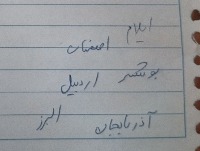 ایلام
اصفهان
بوشهر اردبیل
البرز
آذربایجان